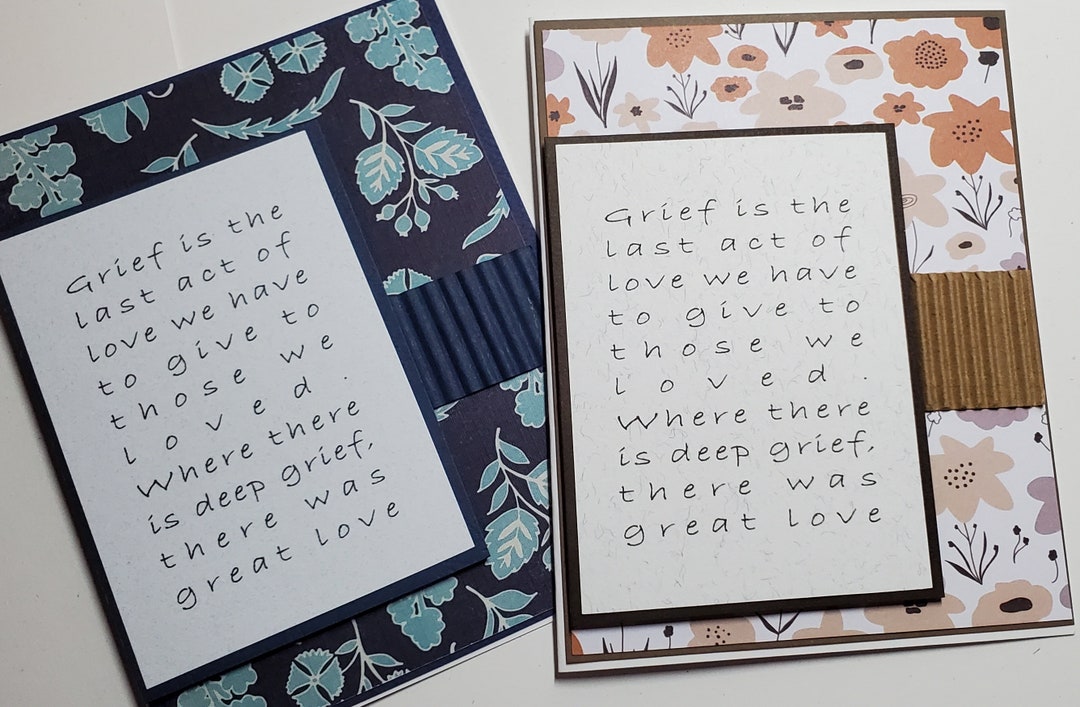 Grief is the
last act of
love we have
to give to
those we
loved.
Where there
is deep grief,
there was
great love
Grief is the
last act of
love we have
to give to
those we
loved.
Where there
is deep grief,
there was
great love